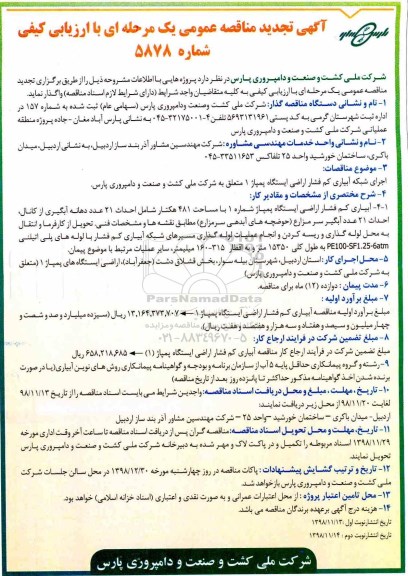 آگهی تجدید مناقصه عمومی یک مرحله ای با ارزیابی کیفی
شماره ۵۸۷۸
شرکت ملی کشت و صنعت و دامپروری پارس در نظر دارد پروژه هایی با اطلاعات مشروحه ذیل را از طریق برگزاری تجدید
مناقصه عمومی یک مرحله ای با ارزیابی کیفی به کلیه متقاضیان واجد شرایط (دارای شرایط لازم اسناد مناقصه) واگذار نماید.
۱- نام و نشانی دستگاه مناقصه گذار: شرکت ملی کشت وصنعت ودامپروری پارس (سهامی عام) ثبت شده به شماره ۱۵۷ در
اداره ثبت شهرستان گرمی به کد پستی ۵۶۹۳۱۳۱۹۶۱ تلفن ۴-۳۲۱۷۵۰۰۱-۰۴۵ به نشانی پارس آباد مغان - جاده پروژه منطقه
عملیاتی شرکت ملی کشت و صنعت و دامپروری پارس
۲- نام و نشانی واحد خدمات مهندسی مشاوره: شرکت مهندسین مشاور آذر بند ساز اردبیل، به نشانی اردبیل، میدان
باکری، ساختمان خورشید واحد ۲۵ تلفاکس ۳۳۵۱۱۶۵۳-۰۴۵
۳- موضوع مناقصات:
اجرای شبکه آبیاری کم فشار اراضی ایستگاه پمپاژ ۱ متعلق به شرکت ملی کشت و صنعت و دامپروری پارس.
۴- شرح مختصری از مشخصات و مقادیر کار:
۴-۱- آبیاری کم فشار اراضی ایستگاه پمپاژ شماره ۱ با مساحت ۴۸۱ هکتار شامل احداث ۲۱ عدد دهانه آبگیری از کانال،
احداث ۲۱ عدد آبگیر سر مزارع (حوضچه های آبدهی سرمزارع) مطابق نقشه ها و مشخصات فنی، تحویل از کارفرما و انتقال
به محل لوله گذاری و ریسه کردن و انجام عملیات لوله گذاری مسیرهای شبکه آبیاری کم فشار با لوله های پلی اتیلنی
PE100-SF1.25-6atm به طول کلی ۱۵۳۵۰ متر و به اقطار ۳۱۵-۱۶۰ میلیمتر، سایر عملیات مرتبط با موضوع پیمان.
۵- محل اجرای کار: استان اردبیل، شهرستان بیله سوار، بخش قشلاق دشت (جعفرآباد)، اراضی ایستگاه های پمپاژ ۱ (متعلق
به شرکت ملی کشت و صنعت و دامپروری پارس)
۶- مدت پیمان: دوازده (۱۲) ماه برای مناقصه.
۷- مبلغ برآورد اولیه:
مبلغ برآورد اولیه مناقصه آبیاری کم فشار اراضی ایستگاه پمپاژ ۱ ← ۱۳,۱۶۴,۳۷۳,۷۰۷ ریال (سیزده میلیارد و صد و شصت و
چهار میلیون و سیصد و هفتاد و سه هزار و هفتصد و هفت ریال).
۸- مبلغ تضمین شرکت در فرآیند ارجاع کار:
مبلغ تضمین شرکت در فرآیند ارجاع کار مناقصه آبیاری کم فشار اراضی ایستگاه پمپاژ (۱) ← ۶۵۸,۲۱۸,۶۸۵ ریال
۹- رشته و گروه پیمانکاری حداقل پایه ۵ آب از سازمان برنامه و بودجه و گواهینامه پیمانکاری روش های نوین آبیاری (یا در صورت
برنده شدن اخذ گواهینامه مذکور حداکثر تا پانزده روز بعد از تاریخ مناقصه)
۱۰- تاریخ، مهلت، مبلغ و محل دریافت اسناد مناقصه: واجدین شرایط می بایست اسناد مناقصه را از تاریخ ۹۸/۱۱/۱۳
لغایت ۹۸/۱۱/۲۰ از محل زیر دریافت نمایند:
اردبیل- میدان باکری - ساختمان خورشید -واحد ۲۵ - شرکت مهندسین مشاور آذر بند ساز اردبیل
۱۱- تاریخ، مهلت و محل تحویل اسناد مناقصه: مناقصه گران پس از دریافت اسناد مناقصه تا ساعت آخر وقت اداری مورخه
۱۳۹۸/۱۱/۲۹ اسناد مربوطه را تکمیل و در پاکت لاک و مهر شده به دبیرخانه شرکت ملی کشت و صنعت و دامپروری پارس
تحویل نمایند.
۱۲- تاریخ و ترتیب گشایش پیشنهادات: پاکات مناقصه در روز چهارشنبه مورخه ۱۳۹۸/۱۲/۳۰ در محل سالن جلسات شرکت
ملی کشت و صنعت و دامپروری پارس بازخواهد شد.
۱۳- محل تامین اعتبار پروژه: از محل اعتبارات عمرانی و به صورت نقدی و اعتباری (اسناد خزانه اسلامی) خواهد بود.
۱۴- هزینه درج آگهی برعهده برندگان مناقصه می باشد.
تاریخ انتشار نوبت اول: ۱۳۹۸/۱۱/۱۳
تاریخ انتشار نوبت دوم: ۱۳۹۸/۱۱/۱۴
شرکت ملی کشت و صنعت و دامپروزی پارس
ParsNamadData
۰۲۱-۸۸۳۴۹۶۷۰-۵